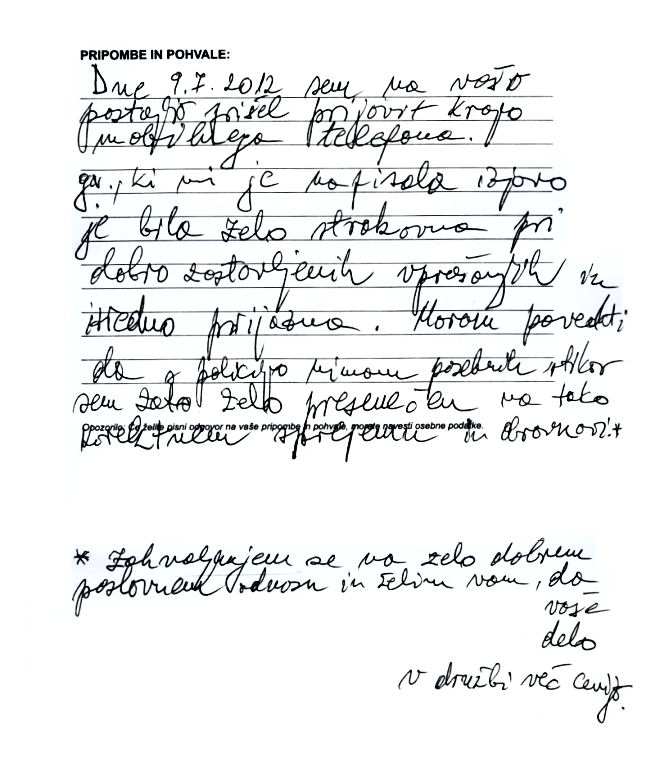 PRIPOMBE IN POHVALE:
Dne 9.7. 2012 sem na vašo
postajo prišel prijavit krajo
mobilnega telefona.
ga., ki mi je napisala izjavo
je bila zelo strokovna pri
dobro zastavljenih vprašanjih in
izredno prijazna. Moram povedati
da s policijo nimam posebnih stikov
sem zato zelo presenečen na tako
Opozorilo: Če želite pisni odgovor na vaše pripombe in pohvale, morate navesti osebne podatke.
korektnem sprejemu in obravnavi.*
* Zahvaljujem se na zelo dobrem
poslovnem odnosu in želim vam, da
vaše
delo
v družbi več cenijo.